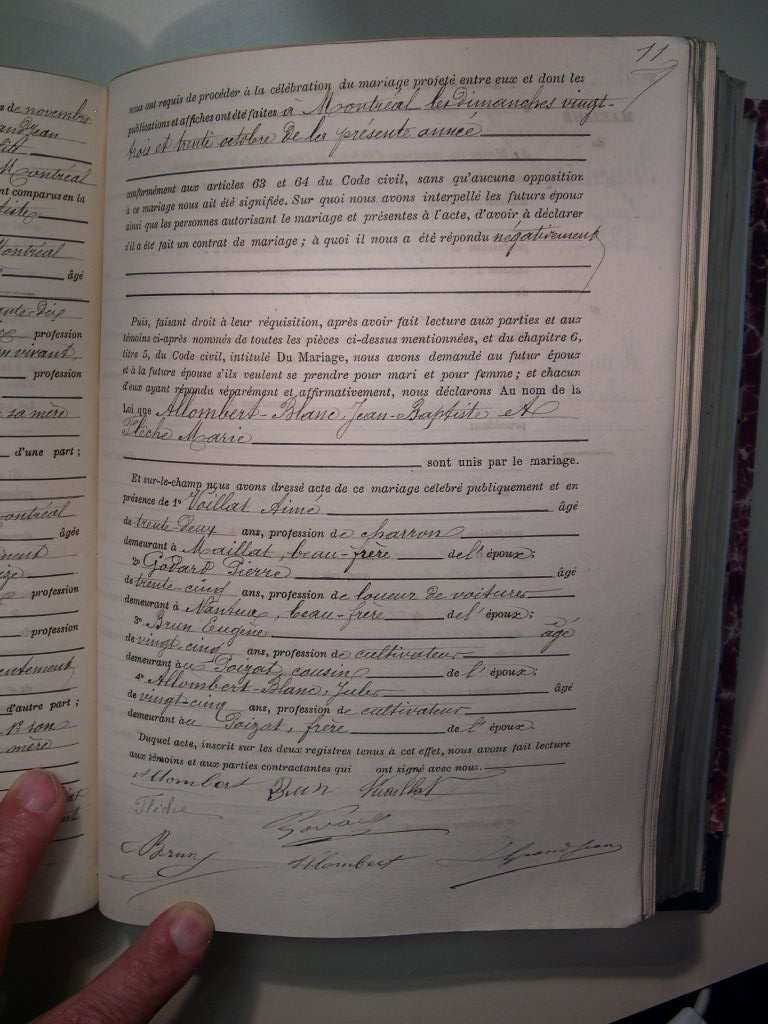 11
s de novembre
andjean
Montréal
nt comparus en la
tiste
Montréal
âgé
profession
vivant
profession
sa mère
d'une part ;
ontréal
âgée
profession
profession
d'autre part ;
mère
nous ont requis de procéder à la célébration du mariage projeté entre eux et dont les
publications et affiches ont été faites à Montréal les dimanches vingt-
trois et trente octobre de la présente année
conformément aux articles 63 et 64 du Code civil, sans qu'aucune opposition
à ce mariage nous ait été signifiée. Sur quoi nous avons interpellé les futurs époux
ainsi que les personnes autorisant le mariage et présentes à l'acte, d'avoir à déclarer
s'il a été fait un contrat de mariage ; à quoi il nous a été répondu négativement
Puis, faisant droit à leur réquisition, après avoir fait lecture aux parties et aux
témoins ci-après nommés de toutes les pièces ci-dessus mentionnées, et du chapitre 6,
titre 5, du Code civil, intitulé Du Mariage, nous avons demandé au futur époux
et à la future épouse s'ils veulent se prendre pour mari et pour femme ; et chacun
d'eux ayant répondu séparément et affirmativement, nous déclarons Au nom de la
loi que Allombert-Blanc, Jean-Baptiste et
Flèche Marie
sont unis par le mariage.
Et sur-le-champ nous avons dressé acte de ce mariage célébré publiquement et en
présence de 1° Voillat Aimé âgé
de trente-deux ans, profession de charron
demeurant à Maillat, beau-frère de l' époux ;
2° Godard Pierre âgé
de trente cinq ans, profession de loueur de voitures
demeurant à Nantua, beau-frère de l' époux ;
3° Brun Eugène âgé
de vingt cinq ans, profession de cultivateur
demeurant au Poizat, cousin de l' époux ;
4° Allombert-Blanc, Jules âgé
de vingt-cinq ans, profession de cultivateur
demeurant au Poizat, frère de l' époux.
Duquel acte, inscrit sur les deux registres tenus à cet effet, nous avons fait lecture
aux témoins et aux parties contractantes qui ont signé avec nous.
Allombert Brun Voaillat
Flèche
Godard
Brun Allombert Grandjean